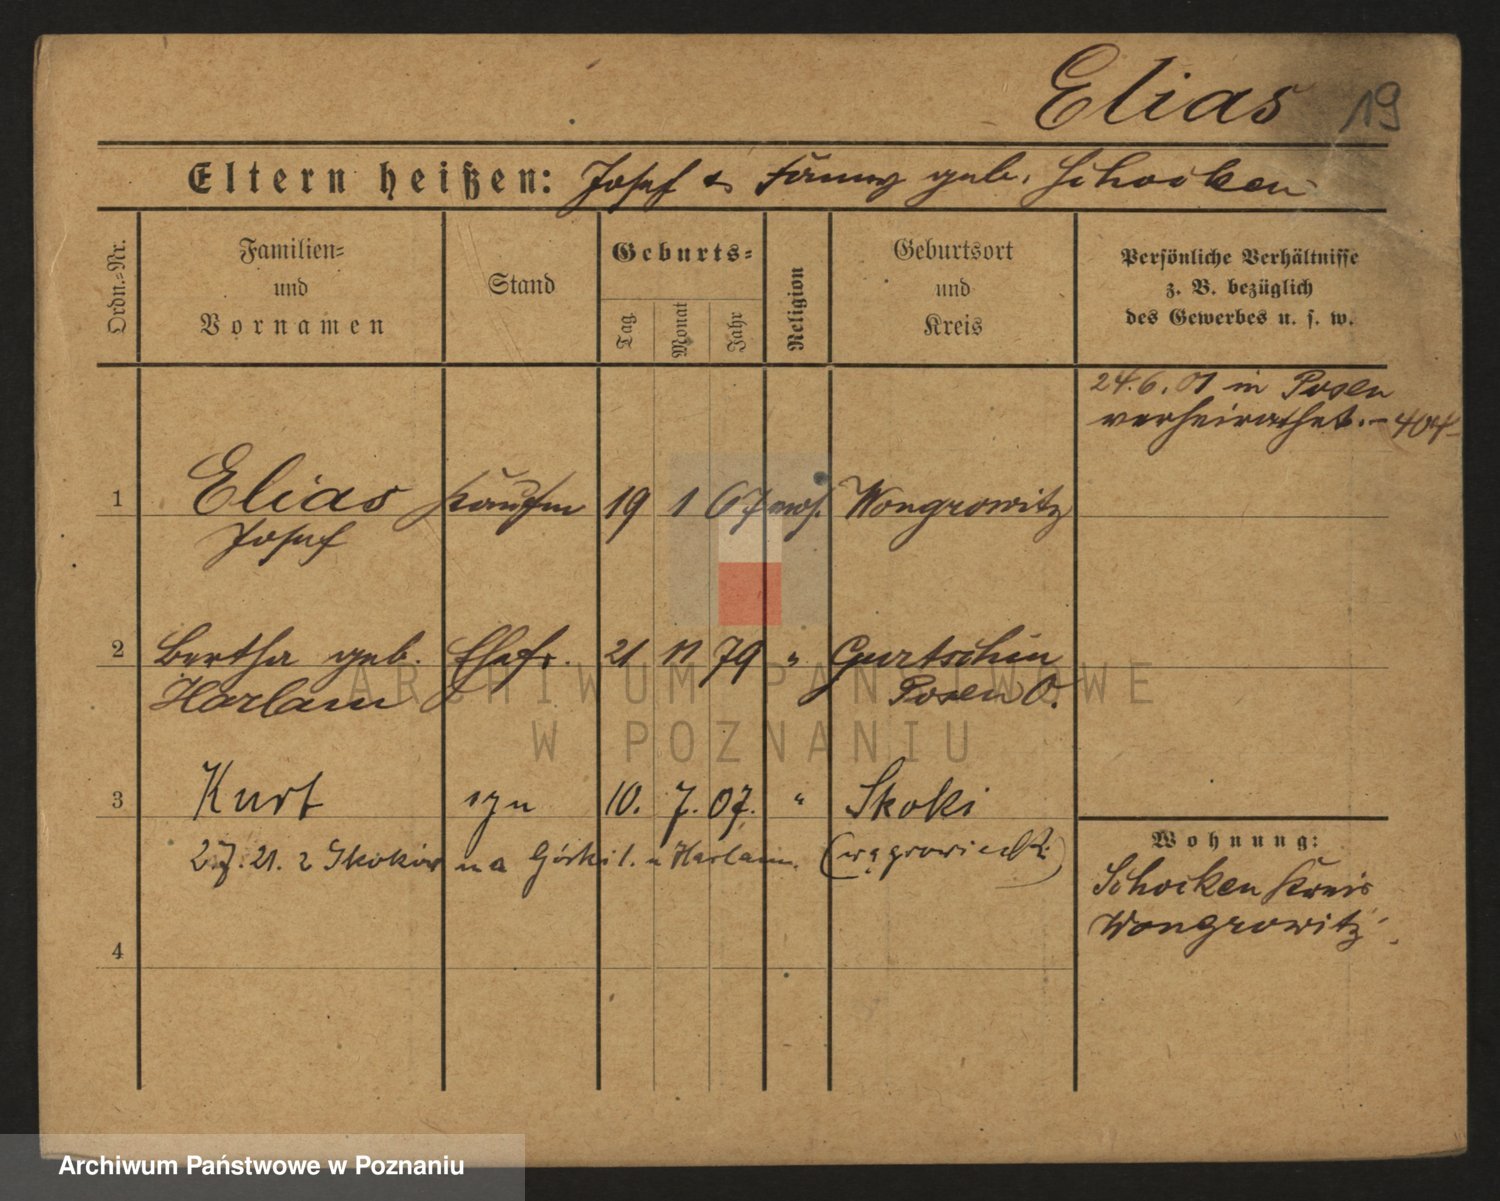 Elias 19
Eltern heißen: Josef & Fanny geb. Schocken
Ordn.-Nr.
Familien-
und
Vornamen
Stand
Geburts-
Tag
Monat
Jahr
Religion
Geburtsort
und
Kreis
Persönliche Verhältnisse
z. B. bezüglich
des Gewerbes u. s. w.
24.6.01 in Posen
verheirathet. - 404
1 Elias Kaufm 19 1 67 mos. Wongrowitz
Josef
2 Bertha geb. Ehefr. 21 11 79 " Gurtschin
Harlam Posen O.
3 Kurt syn 10. 7. 07. " Skoki
27.21. z Skoków na Górki 1. u Harlam. (wągrowiecki)
Wohnung:
Schocken Kreis
Wongrowitz
4
ARCHIWUM PAŃSTWOWE
W POZNANIU
Archiwum Państwowe w Poznaniu